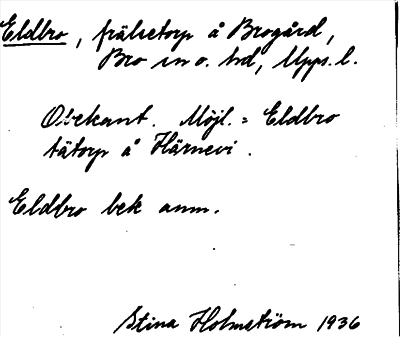 Eldbro, frälsetorp å Brogård,
Bro sn o. hd, Upps. l.
Obekant. Möjl. = Eldbro
tätorp å Härnevi.
Eldbro bek anm.
Stina Holmström 1936